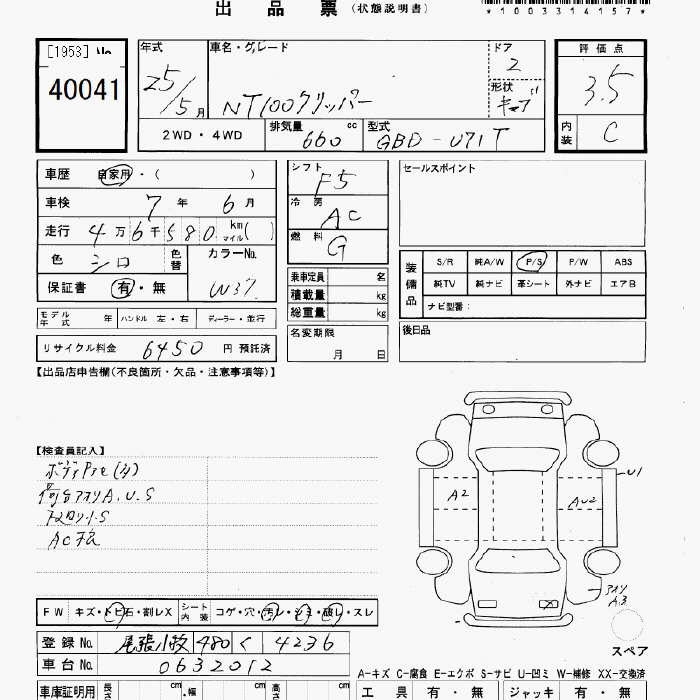 出 品 票 (状態説明書)
*1003314157*
[1953] No
40041
年式 25/5 月
車名・グレード NT100クリッパー
ドア 2
形状 キャブ
評価点 3.5
内装 C
2WD・4WD
排気量 660 cc
型式 GBD-U71T
車歴 自家用・( )
車検 7 年 6 月
走行 4 万 6 千 5 8 0 km マイル ( )
色 シロ 色替
カラーNo. W37
保証書 有・無
シフト F5
冷房 AC
燃料 G
乗車定員 名
積載量 kg
総重量 kg
セールスポイント
装備品
S/R 純A/W P/S P/W ABS
純TV 純ナビ 革シート 外ナビ エアB
ナビ型番:
モデル年式 年 ハンドル 左・右 ディーラー・並行
名変期限 月 日
後日品
リサイクル料金 6450 円 預託済
【出品店申告欄(不良箇所・欠品・注意事項等)】
【検査員記入】
荷台アオリA.U.S
U1
A2
AU2
アオリ
A3
スペア
FW キズ・トビ石・割レX シート内装 コゲ・穴・汚レ・シミ・破レ・スレ
登録No. 尾張小牧 480 く 4236
車台No. 0632012
A-キズ C-腐食 E-エクボ S-サビ U-凹ミ W-補修 XX-交換済
車庫証明用 長さ cm 幅 cm 高 cm
工具 有・無 ジャッキ 有・無